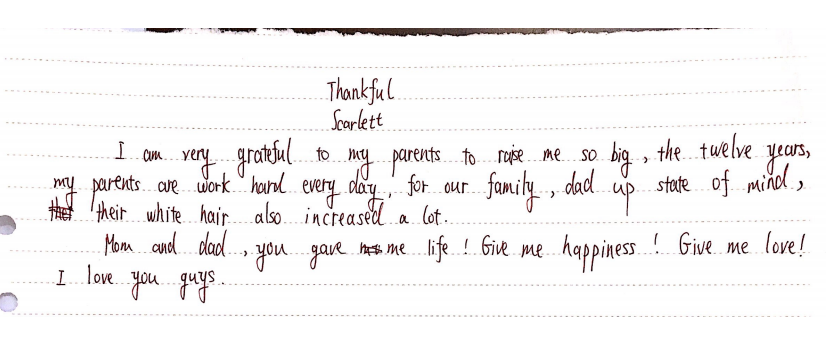 Thankful
Scarlett
I am very grateful to my parents to raise me so big, the twelve years,
my parents are work hard every day, for our family, dad up state of mind,
their white hair also increased a lot.
Mom and dad, you gave me life! Give me happiness! Give me love!
I love you guys.